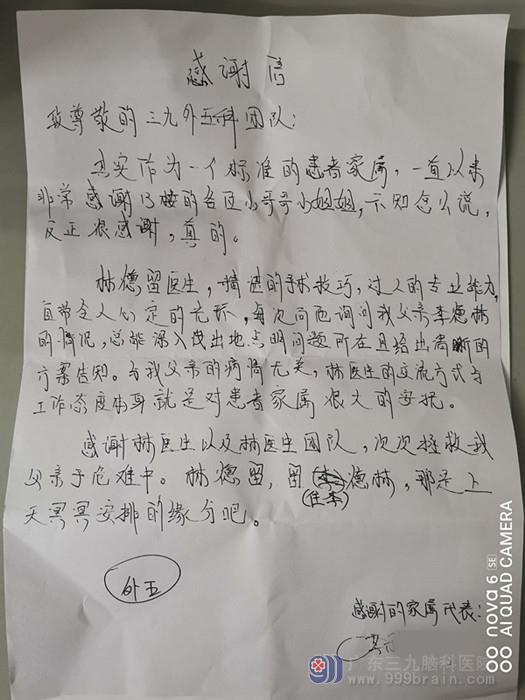 感谢信
致尊敬的三九外五科团队:
其实作为一个标准的患者家属,一直以来
非常感谢13楼的各位小哥哥小姐姐,不知怎么说,
反正很感谢,真的。
林德留医生,精进的手术技巧,过人的专业能力,
自带令人心定的光环,每次向他询问我父亲李德林
的情况,总能深入浅出地点明问题所在且给出清晰的
方案告知。与我父亲的病情无关,林医生的交流方式与
工作态度本身就是对患者家属很大的安抚。
感谢林医生以及林医生团队,次次拯救我
父亲于危难中。林德留,留(住李)德林,那是上
天冥冥安排的缘分吧。
外五
感谢的家属代表:
nova 6 SE
AI QUAD CAMERA
广东三九脑科医院
www.999brain.com